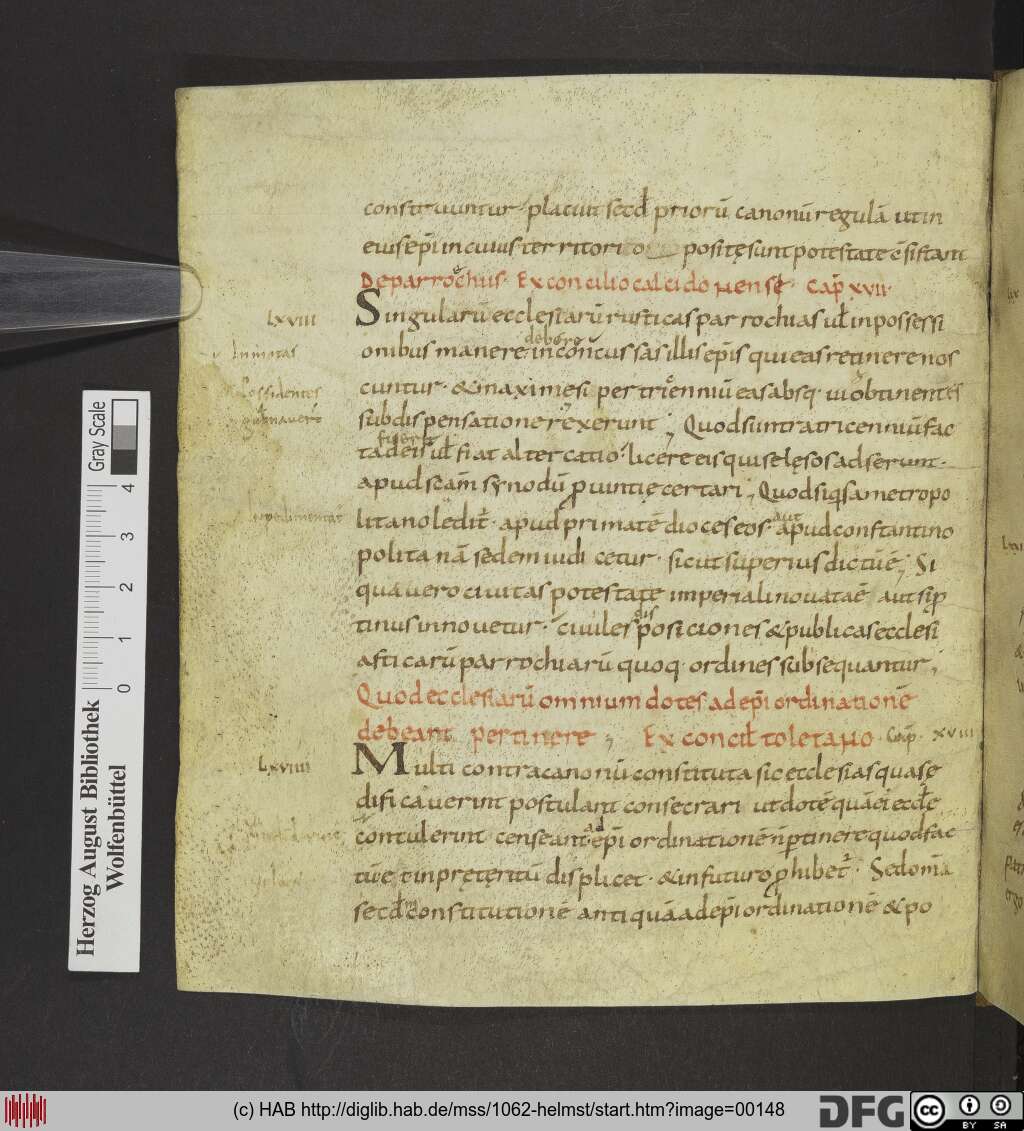 construuntur · placuit secd priorū canonū regulā ut in
eius epi in cuius territorio positę sunt potestate c̄sistant
De parrochiis · Ex concilio calcidonense · Cap xvii ·
LXVIII
Singularū ecclesiarū rusticas parrochias ul in possessi
onibus manere debere inconcussas illis epis qui eas retinere nos
cuntur · & maxime si per triennium eas absq · ui obtinentes
sub dispensatione rexerunt ; Quod si intra tricennium fac
ta de eis fuerit ul fiat altercatio · licere eis qui se lęsos adserunt ·
apud scam synodū puintię certari ; Quod siqs a metropo
litano ledit · apud primatē dioceseos · aut apud constantino
politanā sedem iudicetur · sicut superius dictū ē ; Si
qua vero civitas potestate imperiali novata ē aut si p
tinus innovetur · civiles dispositiones & publicas ecclesi
asticarū parrochiarū quoq · ordines subsequantur ;
Quod ecclesiarū omnium dotes ad epi ordinationē
debeant pertinere ; Ex concil toletano · Cap · xviiii
LXVIIII
Multi contra canonū constituta sic ecclesias quas ę
dificaverint postulant consecrari ut dotē quā ei eccle
contulerint censeant ad epi ordinationē n̄ ptinere quod fac
tū ē & in pręteritū displicet · & in futuro phibet · Sed omia
secdm constitutionē antiquā ad epi ordinationē & po
Possidentes
Gray Scale
0 1 2 3 4
Herzog August Bibliothek
Wolfenbüttel
(c) HAB http://diglib.hab.de/mss/1062-helmst/start.htm?image=00148
DFG
cc
BY SA